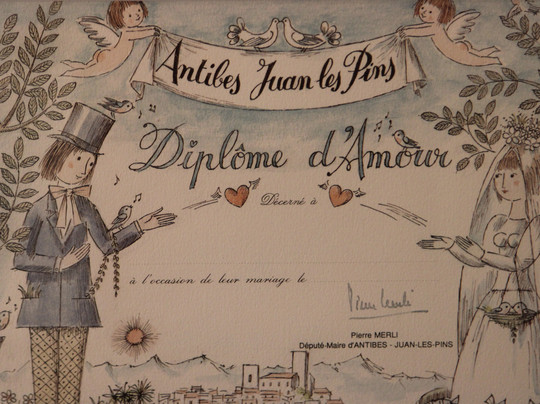 Antibes Juan les Pins
Diplôme d'Amour
Décerné à
à l'occasion de leur mariage le
Pierre Merli
Pierre MERLI
Député-Maire d'ANTIBES - JUAN-LES-PINS